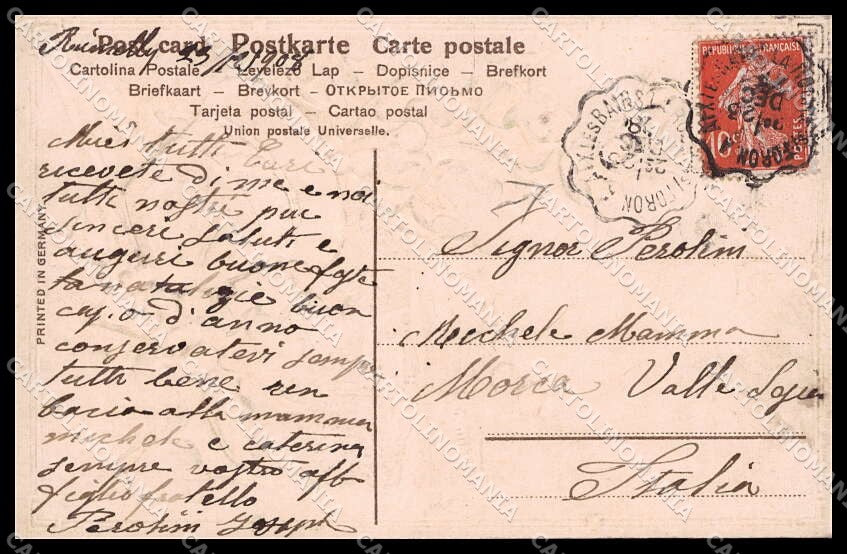 Rumilly 23/12 1908
Post card Postkarte Carte postale
Cartolina Postale – Levelező Lap – Dopisnice – Brefkort
Briefkaart – Brevkort – Открытое Письмо
Tarjeta postal – Cartao postal
Union postale Universelle.
PRINTED IN GERMANY
Miei tutti Cari
ricevete di me e noi
tutti nostri piu
sinceri saluti e
auguri buone feste
ta natalizie buon
capo d'anno
conservatevi sempre
tutti bene
bacio alla mamma
michele e caterina
sempre vostro aff
figlio fratello
Perolini Joseph
REPUBLIQUE FRANÇAISE
10c
POSTES
Signor Perolini
Michele Mamma
Morca Valle Sesia
Italia
CARTOLINOMANIA